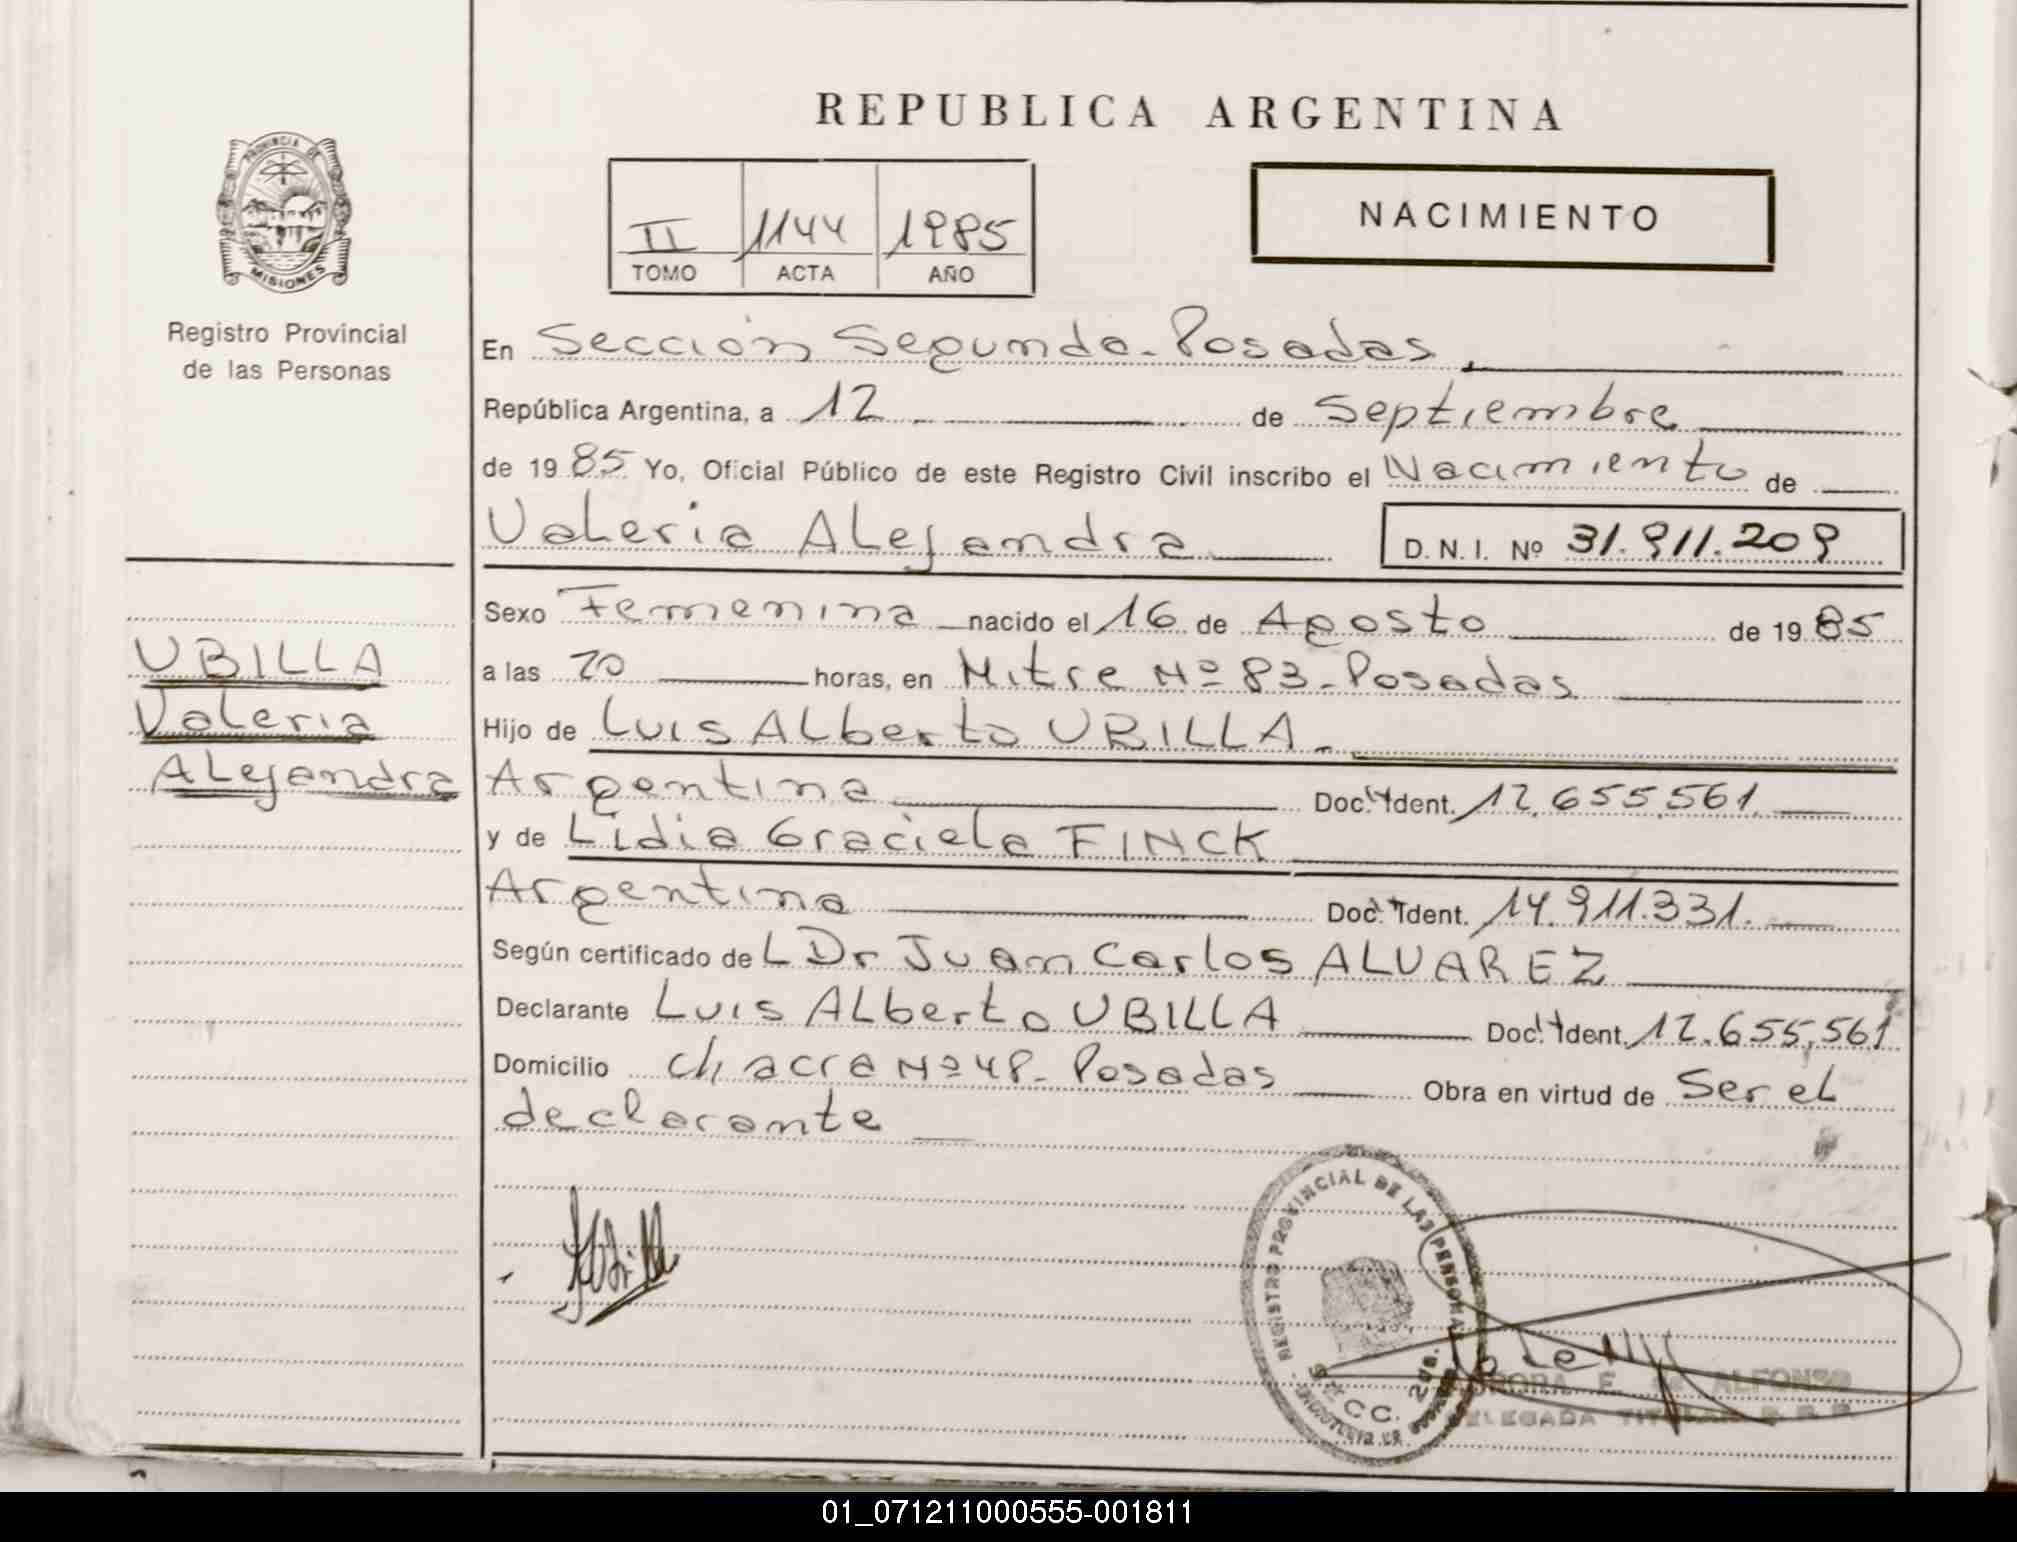 REPUBLICA ARGENTINA
PROVINCIA DE
MISIONES
Registro Provincial
de las Personas
II 1144 1985
TOMO ACTA AÑO
NACIMIENTO
En Sección Segunda - Posadas,
República Argentina, a 12 de Septiembre
de 1985 Yo, Oficial Público de este Registro Civil inscribo el Nacimiento de
Valeria Alejandra D.N.I. Nº 31.911.209
UBILLA
Valeria
Alejandra
Sexo Femenina nacido el 16 de Agosto de 1985
a las 20 horas, en Mitre Nº 83 - Posadas
Hijo de Luis Alberto UBILLA.
Argentina Doc. Ident. 12.655.561
y de Lidia Graciela FINCK
Argentina Doc. Ident. 14.911.331.
Según certificado del Dr Juan Carlos ALVAREZ
Declarante Luis Alberto UBILLA Doc. Ident. 12.655.561
Domicilio chacra Nº 48 - Posadas Obra en virtud de Ser el
declarante
REGISTRO PROVINCIAL DE LAS PERSONAS
SECC. 2da.
AURORA E. de ALFONSO
DELEGADA TITULAR
01_071211000555-001811